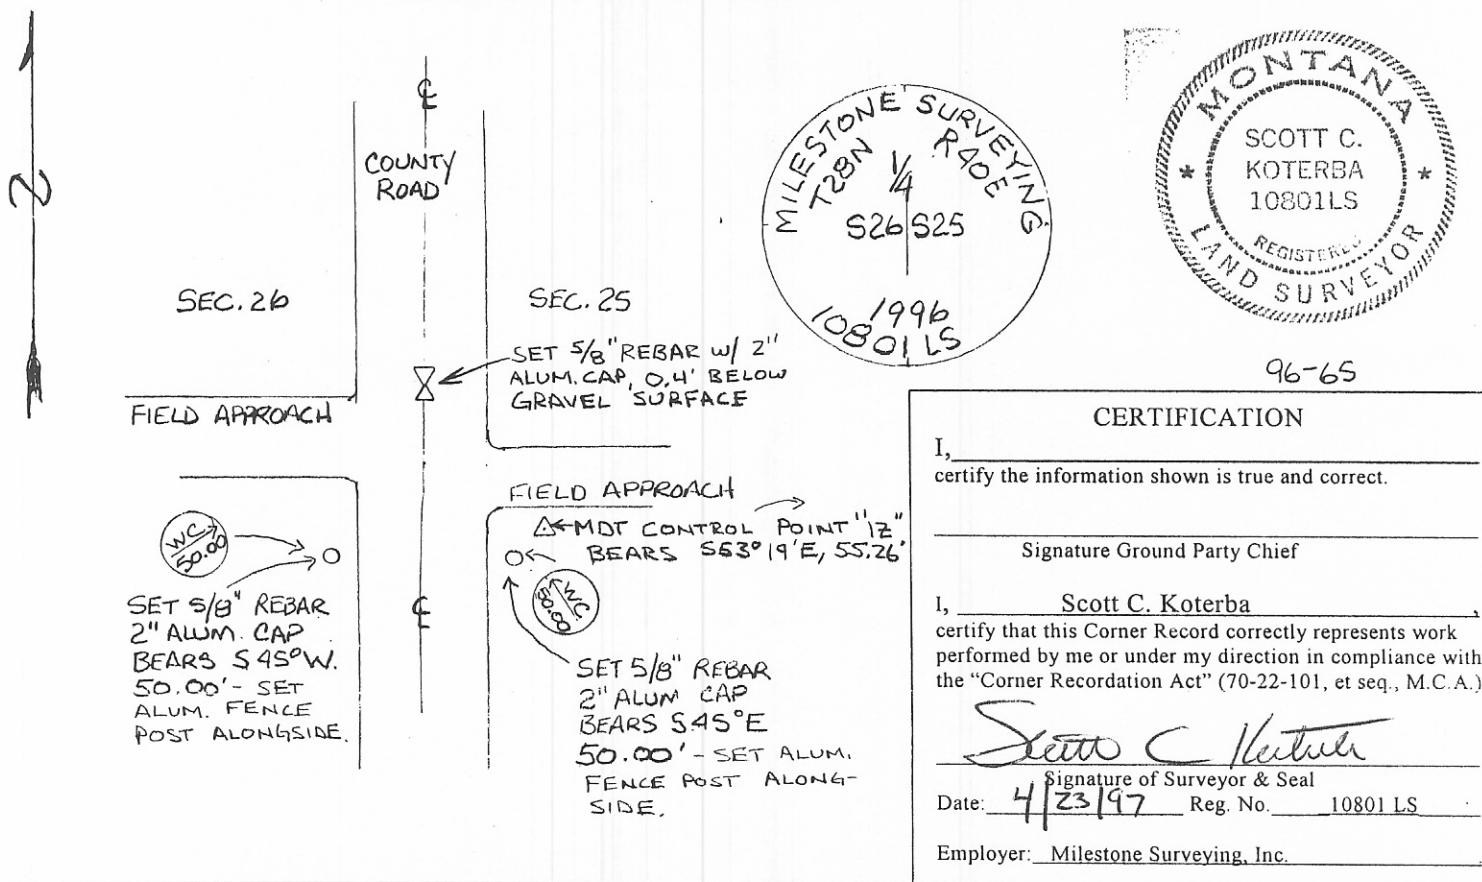 N
℄
COUNTY
ROAD
SEC. 26
SEC. 25
SET 5/8" REBAR W/ 2"
ALUM. CAP, 0.4' BELOW
GRAVEL SURFACE
FIELD APPROACH
FIELD APPROACH
MDT CONTROL POINT "1Z"
BEARS S53°19'E, 55.26'
WC
50.00
SET 5/8" REBAR
2" ALUM. CAP
BEARS S 45° W.
50.00' - SET
ALUM. FENCE
POST ALONGSIDE.
℄
WC
50.00
SET 5/8" REBAR
2" ALUM CAP
BEARS S.45°E
50.00' - SET ALUM.
FENCE POST ALONG-
SIDE.
MILESTONE SURVEYING
T28N R40E
1/4
S26 S25
1996
10801 LS
MONTANA
SCOTT C.
KOTERBA
10801LS
REGISTERED
LAND SURVEYOR
96-65
CERTIFICATION
I,
certify the information shown is true and correct.
Signature Ground Party Chief
I, Scott C. Koterba ,
certify that this Corner Record correctly represents work
performed by me or under my direction in compliance with
the “Corner Recordation Act” (70-22-101, et seq., M.C.A.)
Scott C Koterba
Signature of Surveyor & Seal
Date: 4/23/97 Reg. No. 10801 LS
Employer: Milestone Surveying, Inc.